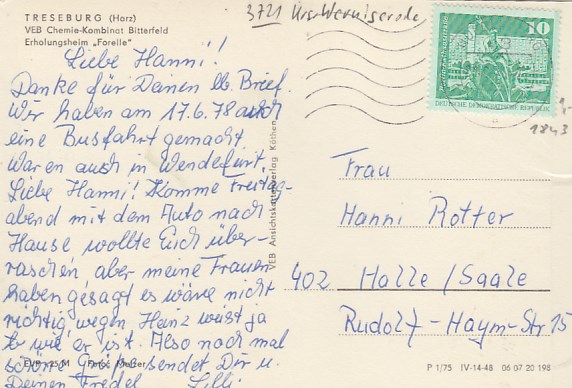 TRESEBURG (Harz)
VEB Chemie-Kombinat Bitterfeld
Erholungsheim „Forelle"
3721 Krs. Wernigerode
10
DEUTSCHE DEMOKRATISCHE REPUBLIK
1843
Liebe Hanni!
Danke für Deinen lb. Brief.
Wir haben am 17.6.78 auch
eine Busfahrt gemacht
waren auch in Wendefurt.
Liebe Hanni! Komme Freitag-
abend mit dem Auto nach
Hause wollte Euch über-
raschen aber meine Frauen
haben gesagt es wäre nicht
richtig wegen Heinz wüst ja
wie er ist. Also noch mal
schöne Grüße sendet Dir u.
Deinen Fredel Lilli
VEB Ansichtskartenverlag Köthen
Frau
Hanni Rotter
402 Halle/Saale
Rudolf-Haym-Str 15
EVP -,25 M Foto:
P 1/75 IV-14-48 06 07 20 198